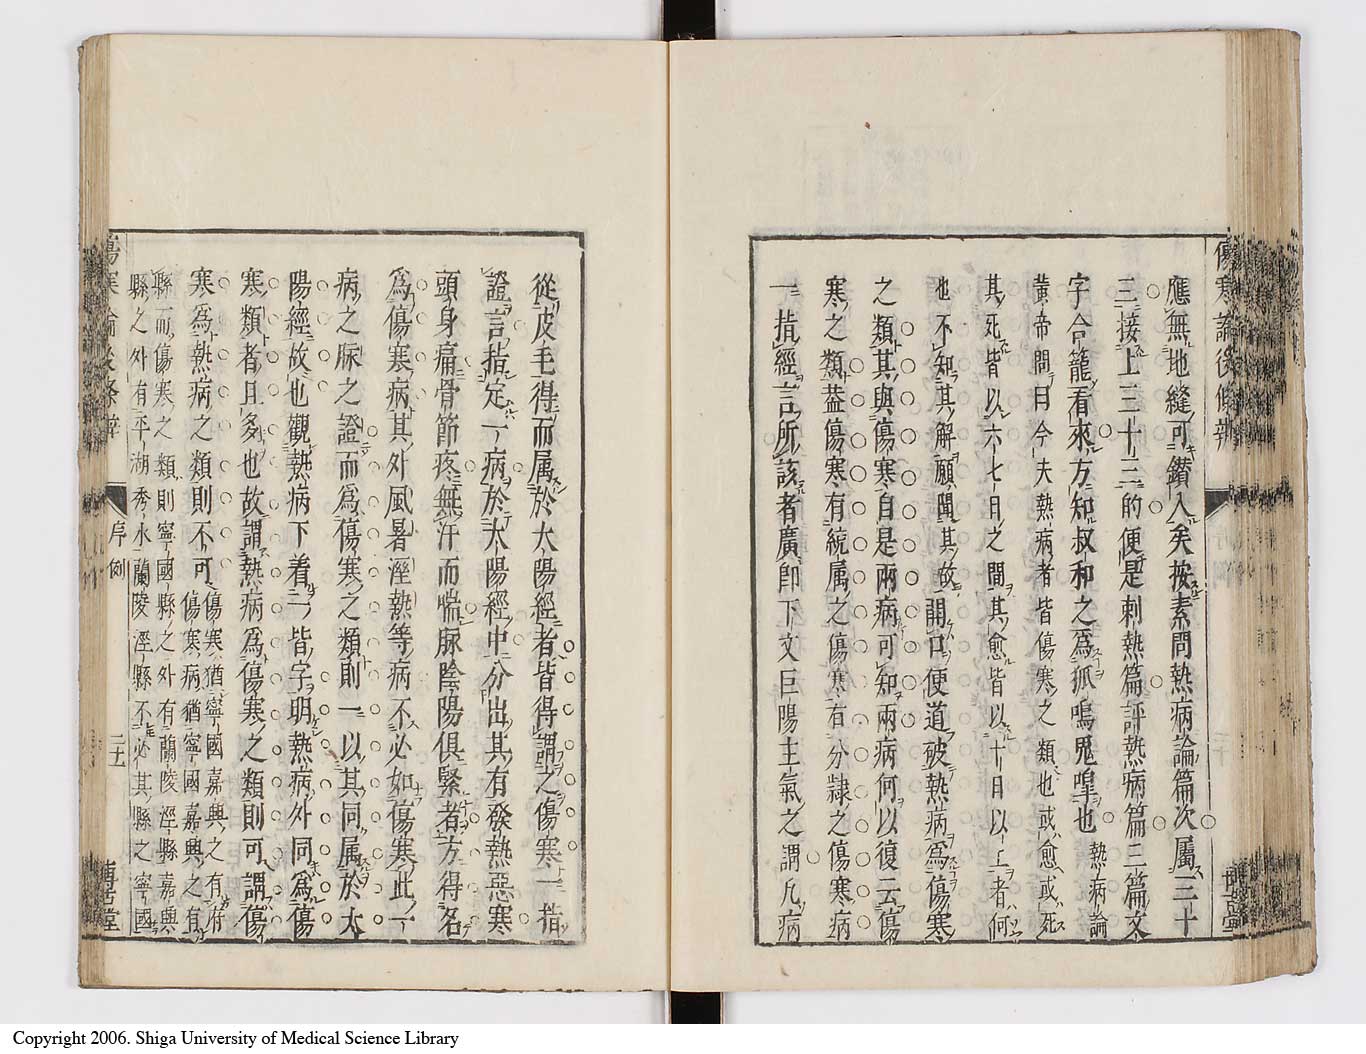 傷寒論後條辨
應無地縫可鑚入矣按素問熱病論篇次屬三十
三接上三十三的便是刺熱篇評熱病篇三篇文
字合籠看來方知叔和之為狐鳴鬼嘷也熱病論
黄帝問曰今夫熱病者皆傷寒之類也或愈或死
其死皆以六七日之間其愈皆以十日以上者何
也不知其解願聞其故開口便道破熱病為傷寒
之類其與傷寒自是兩病可知兩病何以復云傷
寒之類葢傷寒有統属之傷寒有分隷之傷寒病
一指經言所該者廣即下文巨陽主氣之謂凡病
從皮毛得而属於太陽經者皆得謂之傷寒一指
證言指定一病於太陽經中分出其有發熱惡寒
頭身痛骨節疼無汗而喘脉陰陽俱緊者方得名
為傷寒病其外風暑溼熱等病不必如傷寒此一
病之脉之證而為傷寒之類則一以其同属於太
陽經故也觀熱病下着二皆字明熱病外同為傷
寒類者且多也故謂熱病為傷寒之類則可謂傷
寒為熱病之類則不可傷寒猶寧國嘉興之有府
傷寒病猶寧國嘉興之有
縣而傷寒之類則寧國縣之外有蘭陵涇縣嘉興
縣之外有平湖秀水蘭陵涇縣不必其縣之寧國
傷寒論後條辨
序例
二十五
博古堂